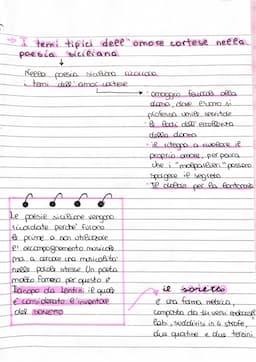 I temi tipici dell'amore cortese nella
poesia siciliana
Nella poesia siciliana ricorrono
i temi dell'amor cortese
· omaggio feudale alla
dama, dove l'uomo si
professa umile servitore
· le lodi dell'eccellenza
della donna
· il ritegno a rivelare il
proprio amore, per paura
che i "malparlieri" possano
spargere il segreto
· Il dolore per la lontananza
Le poesie siciliane vengono
ricordate perché furono
le prime a non utilizzare
l'accompagnamento musicale
ma a cercare una musicalità
nelle parole stesse. Un poeta
molto famoso per questo è
Iacopo da Lentini il quale
è considerato l'inventore
del sonetto
il sonetto
è una forma metrica,
composta da 14 versi endecasil
labi, suddivisi in 4 strofe,
due quartine e due terzine.